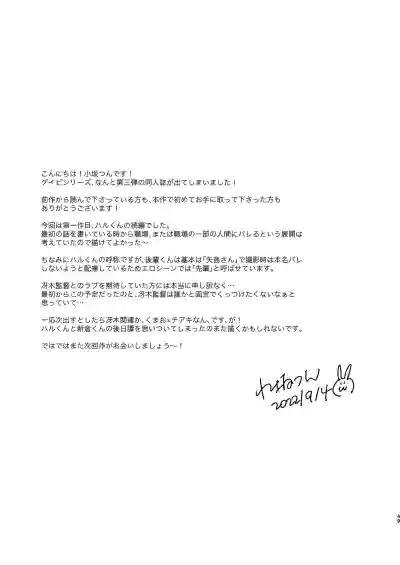 こんにちは！小坂つんです！
ゲイビシリーズ、なんと第三弾の同人誌が出てしまいました！
前作から読んで下さっている方も、本作で初めてお手に取って下さった方も
ありがとうございます！
今回は第一作目、ハルくんの続編でした。
最初の話を書いている時から職場、または職場の一部の人間にバレるという展開は
考えていたので描けてよかった〜
ちなみにハルくんの呼称ですが、後輩くんは基本は「矢島さん」で撮影時は本名バレ
しないようと配慮しているためエロシーンでは「先輩」と呼ばせています。
冴木監督とのラブを期待していた方には本当に申し訳なく…
最初からこの予定だったのと、冴木監督は誰かと画面でくっつけたくないなぁと
思っていて…
一応次出すとしたら冴木関連か、くまお×チアキなん、です、が！
ハルくんと新倉くんの後日譚を思いついてしまったのまた描くかもしれないです。
ではではまた次回作がお会いしましょう〜！
2022/9/4